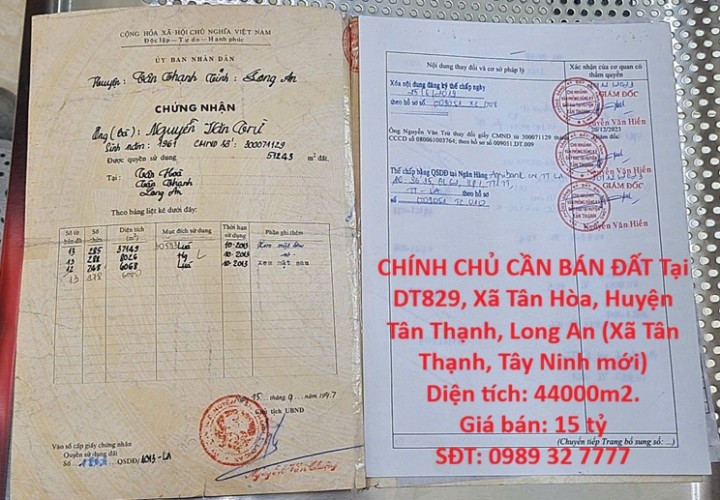 CỘNG HÒA XÃ HỘI CHỦ NGHĨA VIỆT NAM
Độc lập - Tự do - Hạnh phúc
ỦY BAN NHÂN DÂN
Huyện: Tân Thạnh Tỉnh: Long An
CHỨNG NHẬN
Ông (bà) Nguyễn Văn Trừ
Sinh năm: 1961 CMND số: 300071129
Được quyền sử dụng 51243 m² đất.
Tại: Tân Hoà
Tân Thạnh
Long An
Theo bảng liệt kê dưới đây:
Số tờ bản đồ Số thửa Diện tích (m²) Mục đích sử dụng Thời hạn sử dụng Phần ghi thêm
13 285 37149 Lúa 10-2013
13 286 8026 10-2013
12 248 6068 Lúa 10-2013 Xem mặt sau
13
Ngày 15 tháng 9 năm 1997
Chủ tịch UBND
Vào sổ cấp giấy chứng nhận
Quyền sử dụng đất
Số QSDĐ/1013-LA
Nội dung thay đổi và cơ sở pháp lý
Xác nhận của cơ quan có thẩm quyền
Xóa nội dung đăng ký thế chấp ngày
theo hồ sơ số
GIÁM ĐỐC
Nguyễn Văn Hiền
20/12/2023
Ông Nguyễn Văn Trừ thay đổi giấy CMND số 300071129 thành
CCCD số 080061003764; theo hồ sơ số 009051.DT.009
Thế chấp bằng QSDĐ tại Ngân Hàng Agribank
theo hồ sơ số
GIÁM ĐỐC
Nguyễn Văn Hiền
CHÍNH CHỦ CẦN BÁN ĐẤT Tại
DT829, Xã Tân Hòa, Huyện
Tân Thạnh, Long An (Xã Tân
Thạnh, Tây Ninh mới)
Diện tích: 44000m2.
Giá bán: 15 tỷ
SĐT: 0989 32 7777
(Chuyển tiếp Trang bổ sung số: ...)